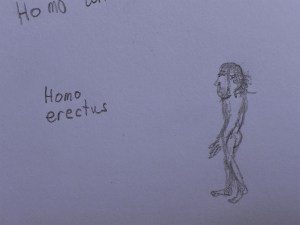 Homo
Homo
erectus